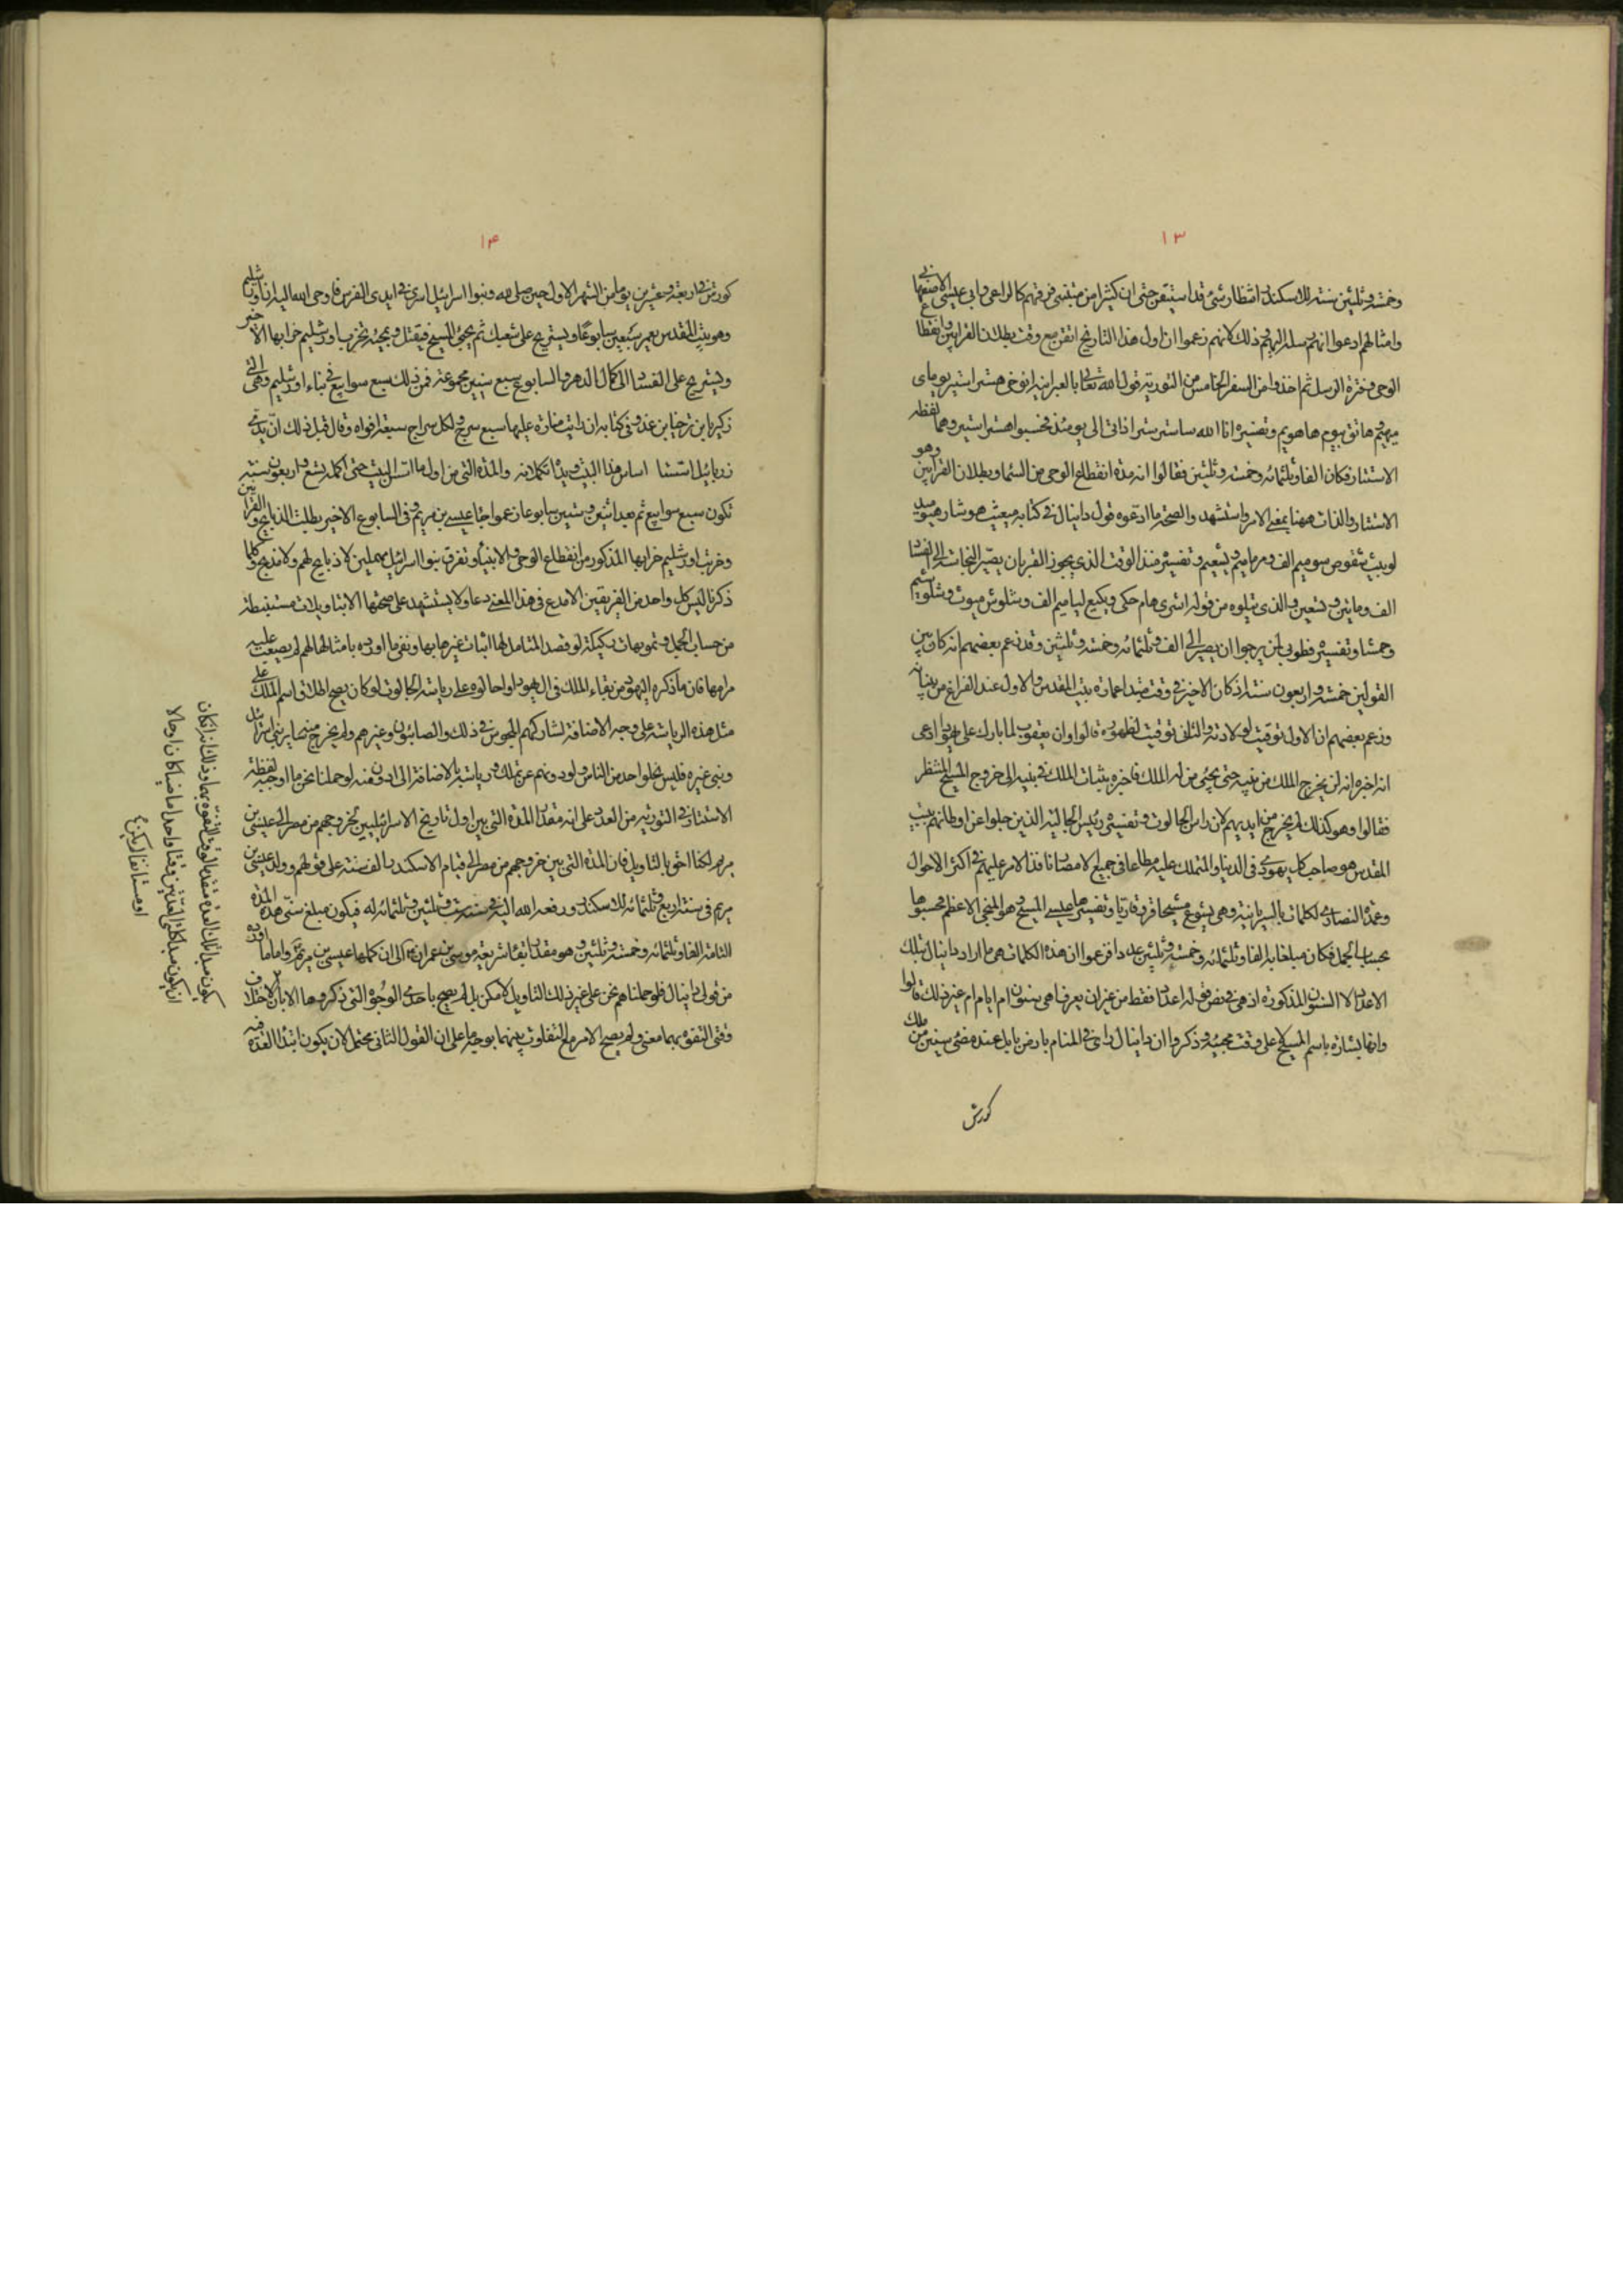 ١٣
وخمسة وثلثين سنة للاسكندر انتظار شئ قد استيقن حتى ان كثيرا من متنبئى فرقتهم كالراعى وابى عيسى الاصفهانى
وامثالهم ادعوا انهم رسله اليهم ذلك لانهم زعموا ان اول هذا التاريخ اتفق مع وقت بطلان القرابين وانقطاع
الوحى وفترة الرسل ثم اخذوا من السفر الخامس من التورية قول الله تعالى بالعبرانية انوخى هستر استير بوماى
ميهم هاتق بيوم هاهويم وتفسيره انا الله ساستر سترا ذاتى الى يومئذ فحسبوا هستر استير وهما لفظه
الاستتار فكان الفا وثلثمائة وخمسة وثلثين فقالوا انه مدة انقطاع الوحى من السماء وبطلان القرابين وهو
الاستتار والذات ههنا بمعنى الامر واستشهد والصحة ما ادعوه قول دانيال فى كتابه ميعيث هوشار هتوميد
لويبث شقوص سوميم الف ومر ماميم وتشعيم وتفسيره منذ الوقت الذى يجوز القربان يصير النجاسة الى الفساد
الف ومايتين وتسعين والذى يتلوه من قوله اشرى هام حكى ويكيع لياميم الف وشلوش ميوث وشلوشيم
وحمشا وتفسيره فطوبى لمن يرجوا ان يصير الى الف وثلثمائة وخمسة وثلثين وقد زعم بعضهم انه كان بين
القولين خمسة واربعون سنة اذ كان الاخير فى وقت مبتدا عمارة بيت المقدس والاول عند الفراغ من بنائه
وزعم بعضهم ان الاول توقيت لولادته والثانى توقيت لظهوره قالوا وان يعقوب لما بارك على يهودا دعى
انه اخبره انه لن يخرج الملك من بنيه حتى يجئ من له الملك فاخبره بثبات الملك فى بنيه الى خروج المسيح المنتظر
فقالوا وهو كذلك لم يخرج من ايديهم لان راس الجالوت وتفسيره رئيس الجالية الذين جلوا عن اوطانهم ببيت
المقدس هو صاحب كل يهودى فى الدنيا والمتملك عليه مطاعا فى جميع الامصار نافذ الامر عليهم فى اكثر الاحوال
وعمد النصارى لكلمات بالسريانية وهى يشوع مشيحا فروقا ربا وتفسيرها عيسى المسيح وهو المنجى الاعظم فحسبوها
بحساب الجمل فكان مبلغها به الفا وثلثمائة وخمسة وثلثين عددا فزعموا ان هذه الكلمات هى ما اراد دانيال بتلك
الاعداد لا السنون المذكورة اذ هى فى نص قوله اعداد فقط من غير ان يعرف اهى سنون ام ايام ام غير ذلك قالوا
وانها بشارة باسم المسيح لا على وقت مجيئه وذكروا ان دانيال راى فى المنام بارض بابل عند مضى سنين من ملك
كورش
١٤
كورش فى اربعة وعشرين يوما من الشهر الاول حين صلى لله وبنوا اسرائيل اسرى فى ايدى الفرس فاوحى الله اليه ان اورشليم
وهو بيت المقدس يعمر سبعين سابوعا ويستريح على شعبك ثم يجئ المسيح فيقتل وبجيئه تخرب اورشليم خرابها الاخير
ويستريح على الفساد الى كمال الدهر والسابوع سبع سنين مجموعة فمن ذلك سبع سوابيع فى بناء اورشليم وهى التى
زكريا بن برخيا بن عدو فى كتابه ان رايت منارة عليها سبع سرج ولكل سراج سبعة افواه وقال قبل ذلك ان يدى
زربابيل اسستا اساس هذا البيت ويداه تكملانه والمدة التى من اول ما اسس البيت حتى اكمله تسع واربعون سنة
تكون سبع سوابيع ثم بعد اثنين وستين سابوعا زعموا جاء عيسى بن مريم وفى السابوع الاخير بطلت الذبايح والقرابين
وخربت اورشليم خرابها المذكور من انقطاع الوحى والانبياء وتفرق بنوا اسرائيل مهملين لا ذبايح لهم ولا مذبح وكلما
ذكرنا ليس كل واحد من الفريقين الا مدع فى هذا المعنى دعاو لا يستشهد على صحتها الا بتاويلات مستنبطة
من حساب الجمل وتمويهات ركيكة لو قصد المتامل لها اثبات غيرها بها ونفى ما اوردوه بامثالها لهم لم يصعب عليه
مرامها فان ما ذكره اليهود من بقاء الملك فى ال يهودا واحالوه على رياسة الجالوت لو كان يصح اطلاق اسم الملك على
مثل هذه الرياسة على وجه الاضافة لشاركهم المجوس فى ذلك والصابئون وغيرهم ولم يخرج منهما بر بنى اسرائيل
وبنى غيره فليس يخلوا واحد من الناس ولو دونهم عن تملك ورياسة بالاضافة الى ادون منه لو حملنا نحن ما اوجبه لفظة
الاستتار فى التورية من العدد على انه مقدار المدة التى بين اول تاريخ الاسرائيليين لخروجهم من مصر الى عيسى بن
مريم لكنا احق بالتاويل فان المدة التى بين خروجهم من مصر الى قيام الاسكندر الف سنة على قولهم وولد عيسى بن
مريم فى سنة اربع وثلثمائة للاسكندر ورفعه الله اليه فى سنة ست وثلثين وثلثمائة له فيكون مبلغ سنى هذه المدة
التامة الفا وثلثمائة وخمسة وثلثين وهو مقدار بقاء شريعة موسى بن عمران الى ان كملها عيسى بن مريم واما ما اوردوه
من قول دانيال فلو حملناهم نحن على غير ذلك التاويل لامكن بل لم يصح باحدى الوجوه التى ذكروها الا بان لا خلاف
وقتى التفوه بهما معنى ولم يصح الامر مع التفاوت بينهما بوجه ما على ان القول الثانى محتمل لان يكون ابتداء العدة فيه
يكون مبدا تلك العدة متقدما لوقت التفوه بها وذلك انه ان كان
ان يكون مبدا كلتى العدتين وقتا واحدا ماضيا كان او حالا
او مستانفا لم يكن